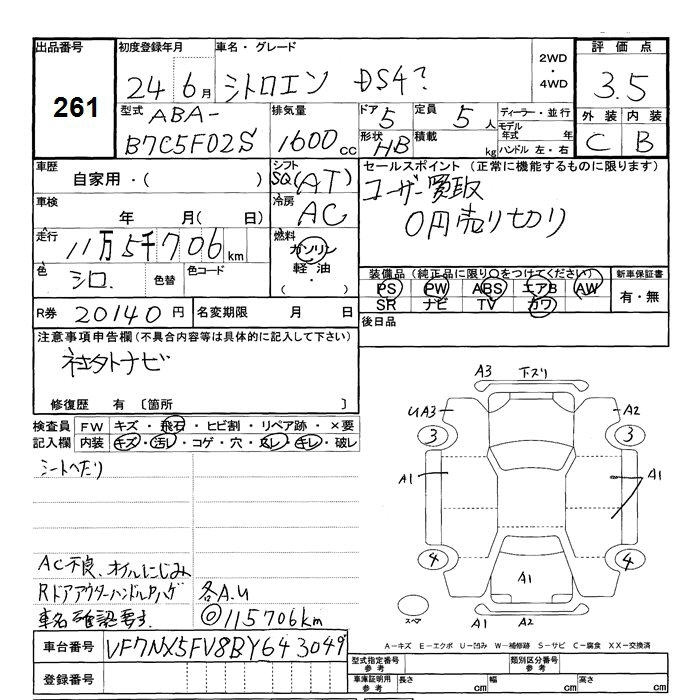 出品番号
261
初度登録年月
24年6月
車名・グレード
シトロエン DS4?
2WD
・
4WD
評価点
3.5
外装 内装
C B
型式
ABA-
B7C5F02S
排気量
1600cc
ドア
5
形状
HB
定員
5人
積載
kg
ディーラー・並行
モデル年式 年
ハンドル 左・右
車歴
自家用・( )
シフト
SQ(AT)
車検
年 月( 日)
冷房
AC
走行
11万5千706km
燃料
ガソリン
軽油
( ・ )
色
シロ
色替
色コード
R券 20140円
名変期限 月 日
セールスポイント (正常に機能するものに限ります)
ユーザー買取
0円売り切り
装備品(純正品に限り○をつけてください)
PS PW ABS エアB AW
SR ナビ TV カワ
新車保証書
有・無
後日品
注意事項申告欄(不具合内容等は具体的に記入して下さい)
社外ナビ
修復歴 有 〔箇所 〕
検査員記入欄
FW キズ・飛石・ヒビ割・リペア跡・×要
内装 キズ・汚レ・コゲ・穴・スレ・キレ・破レ
シートへたり
AC不良、オイルにじみ
Rドアアウターハンドルハゲ
各A.U
車名確認要す.
◎115706km
A3 下スリ
UA3
A2
3
3
A1
A1
4
4
A1
スペア
A1 A2
A−キズ E−エクボ U−凹み W−補修跡 S−サビ C−腐食 XX−交換済
車台番号 VF7NX5FV8BY643049
登録番号
型式指定番号
参考
類別区分番号
参考
車庫証明用
参考
長さ cm 幅 cm 高さ cm